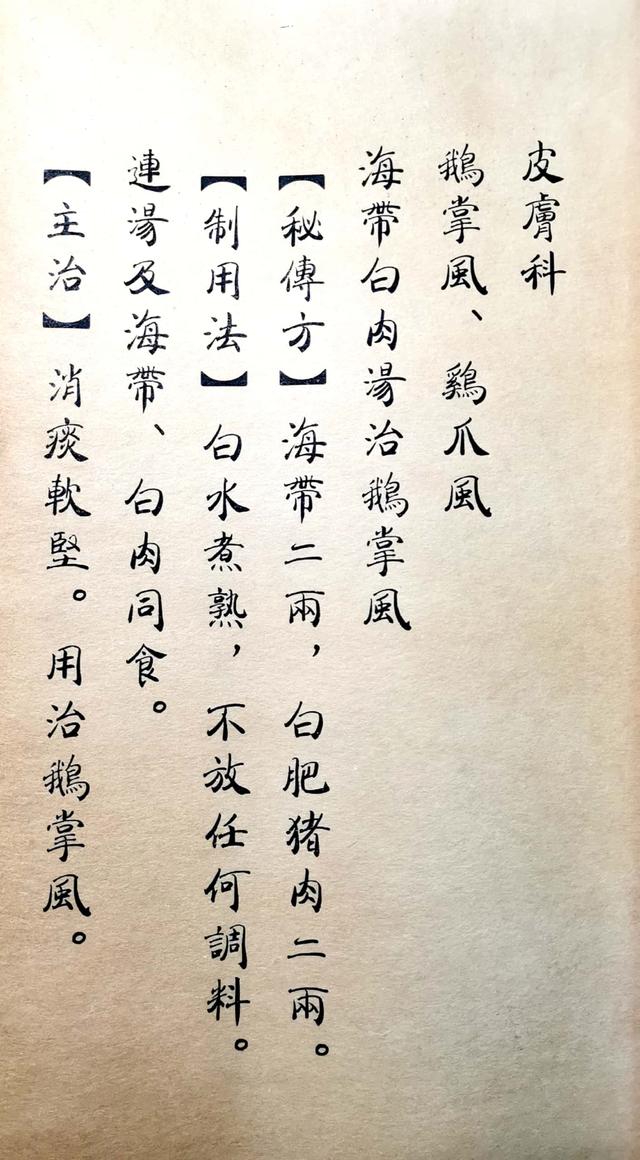 皮膚科
鵝掌風、鷄爪風
海帶白肉湯治鵝掌風
【秘傳方】海帶二兩，白肥猪肉二兩。
【制用法】白水煮熟，不放任何調料。
連湯及海帶、白肉同食。
【主治】消痰軟堅。用治鵝掌風。